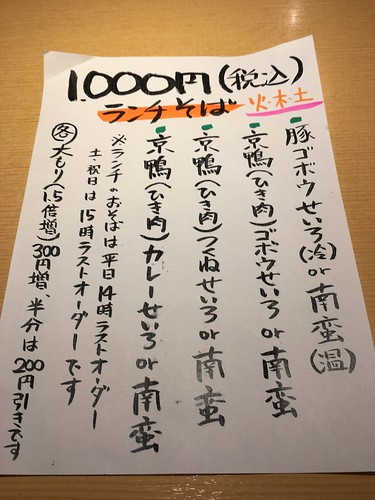 1.000円(税込)
ランチそば 火・木・土
豚ゴボウせいろ(冷)or南蛮(温)
京鴨(ひき肉)ゴボウせいろor南蛮
京鴨(ひき肉)つくねせいろor南蛮
京鴨(ひき肉)カレーせいろor南蛮
※ランチのおそばは平日14時ラストオーダー
土、祝日は15時ラストオーダーです
各大もり(1.5倍増)300円増、半分は200円引きです